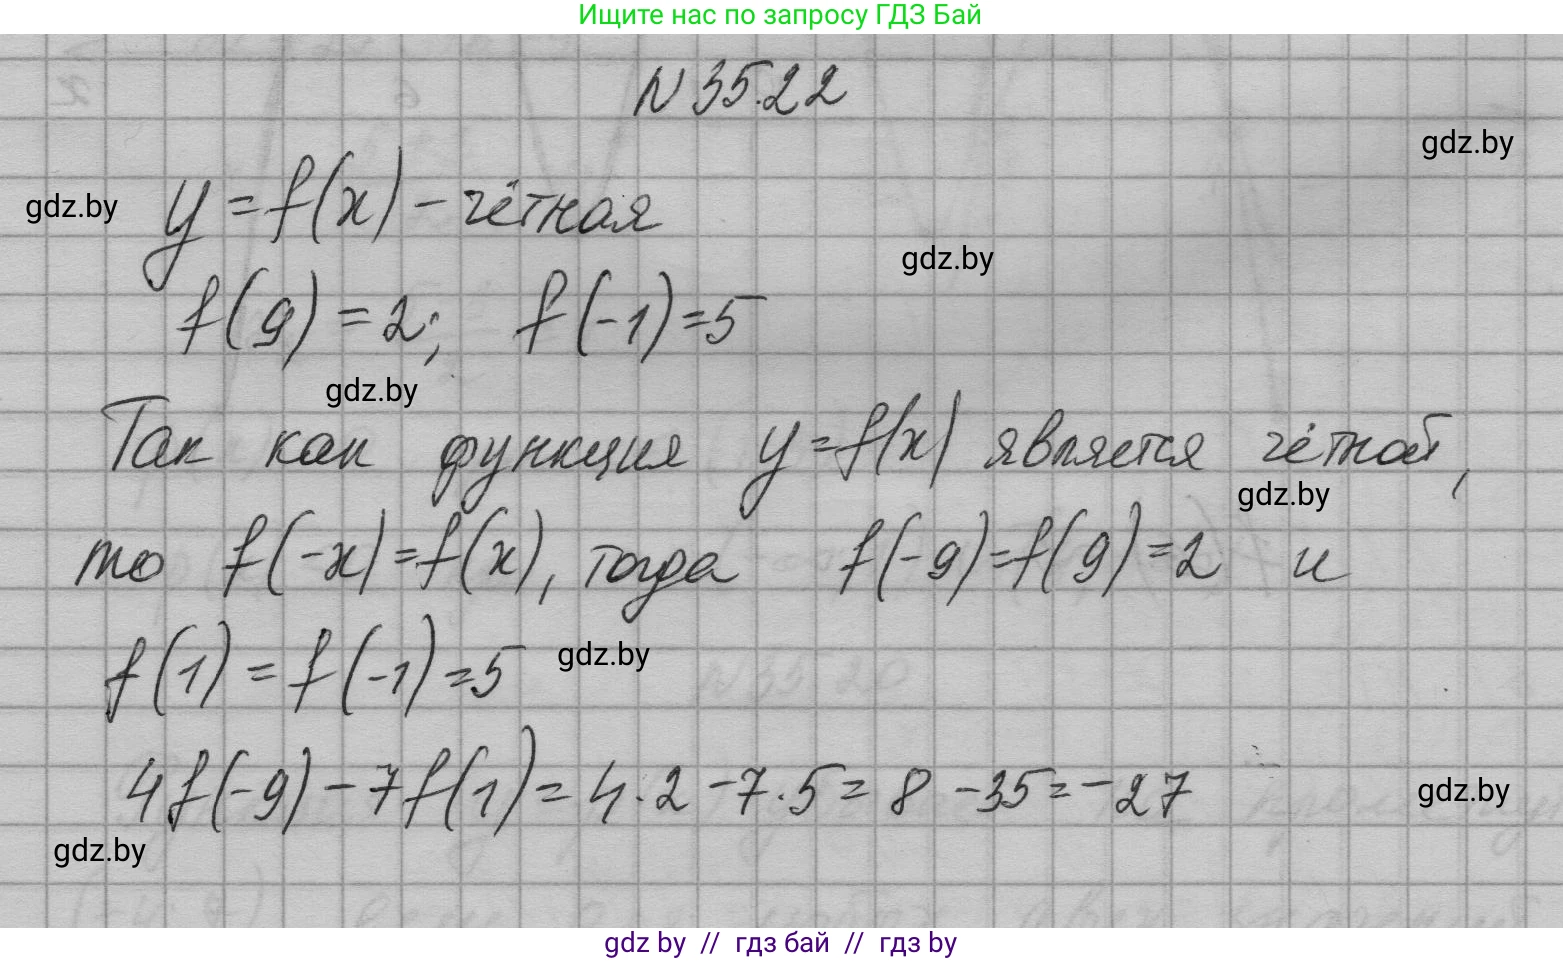 Ищите нас по запросу ГДЗ Бай
N 35.22
gdz.by
gdz.by
y = f(x) - чётная
gdz.by
f(9) = 2; f(-1) = 5
gdz.by
Так как функция y = f(x) является чётной,
gdz.by
то f(-x) = f(x), тогда f(-9) = f(9) = 2 и
f(1) = f(-1) = 5
gdz.by
4f(-9) - 7f(1) = 4·2 - 7·5 = 8 - 35 = -27
gdz.by
gdz.by
gdz by // гдз бай // гдз by